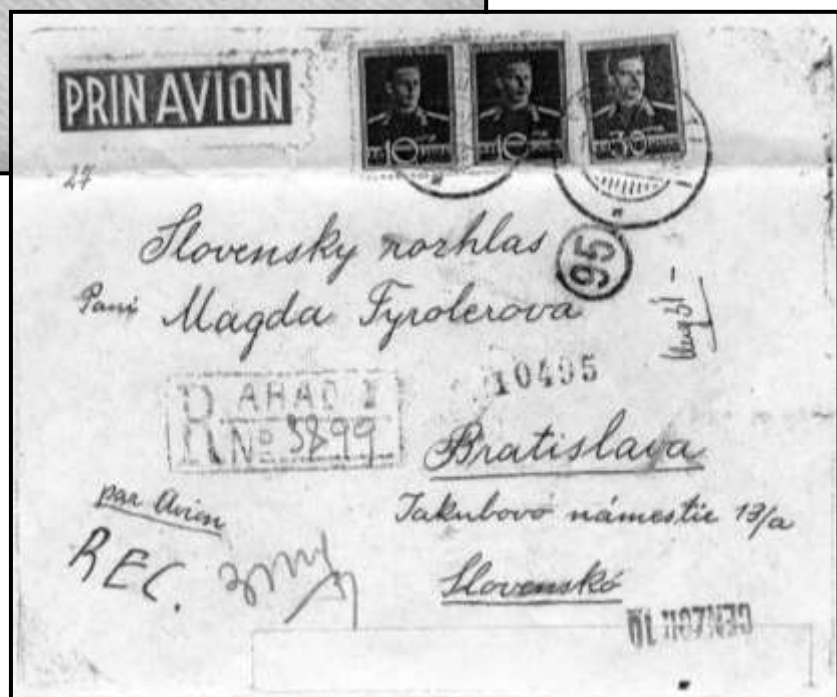 PRIN AVION
10 10 30
27
Slovensky rozhlas
95
Pani Magda Tyrolerova
10495
R ARAD I
No 3899
Bratislava
par Avion
Jakubovo námestie 13/a
REC.
Slovenskó
CENZURAT